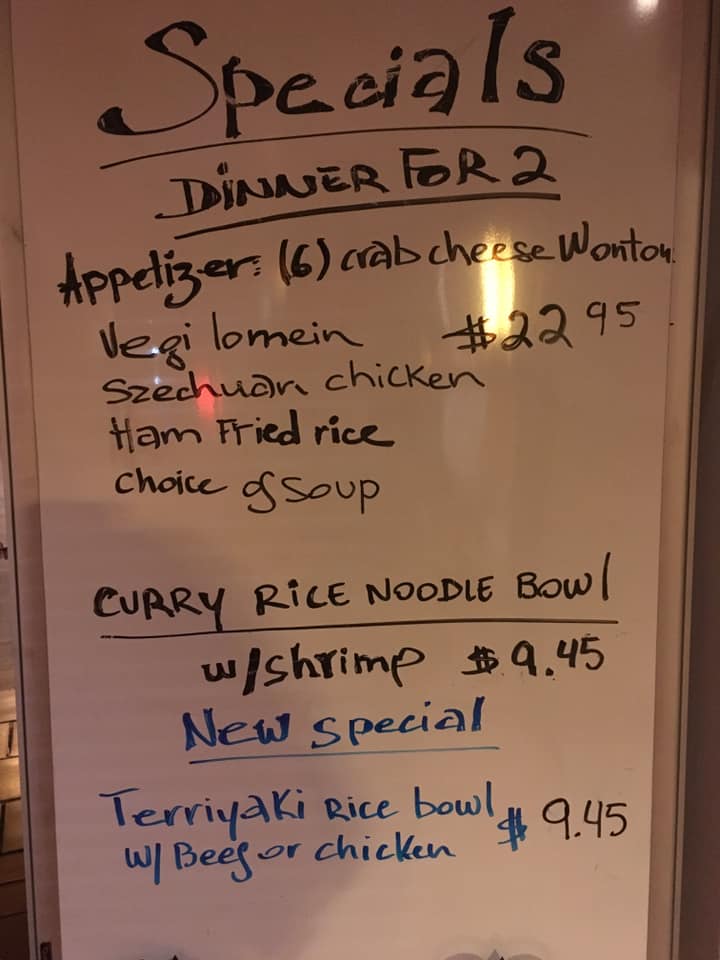 Specials
DINNER FOR 2
Appetizer: (6) crab cheese Wonton.
Vegi lomein $22 95
Szechuan chicken
Ham Fried rice
choice of Soup
CURRY RICE NOODLE BOWl
w/shrimp $9.45
New special
Terriyaki Rice bowl $ 9.45
w/ Beef or chicken